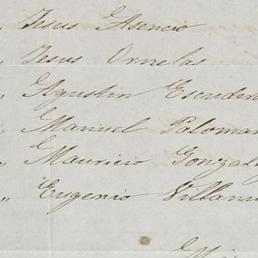 „ Jesus Asencio
„ Jesus Ornelas
„ Agustin Escuder
„ Manuel Paloma
„ Mauricio Gonzal
„ Eugenio Villanu